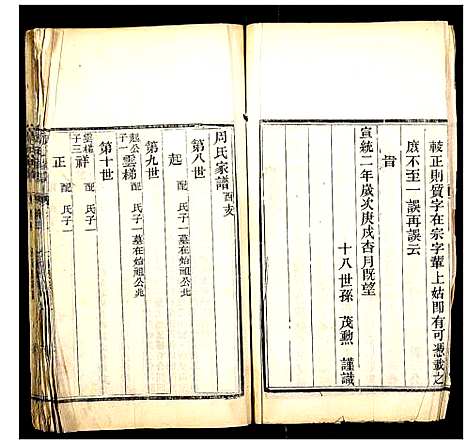 較正則質字在宗字輩上姑閒有可憑載之
庶不至一誤再誤云
旹
宣統二年歲次庚戌杏月既望
十八世孫 茂勲 謹識
周氏家譜 酉支
第八世
起 配 氏子一墓在始祖公兆
第九世
起公子一 雲梯 配 氏子一墓在始祖公兆
第十世
雲梯子三 祥 配 氏子一
正 配 氏子一